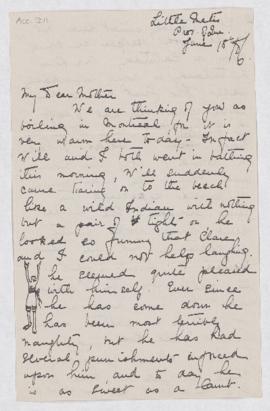 Acc. 211
Little Metis
Pro. Que
June 18th
My Dear Mother
We are thinking of you as
boiling in Montreal for it is
very warm here to-day - In fact
Will and I both went in bathing
this morning, Will suddenly
came tearing on to the beach
like a wild Indian with nothing
but a pair of tights on he
looked so funny that Clare
and I could not help laughing.
he seemed quite pleased
with himself. Ever since
he has come down he
has been most terribly
naughty, but he has had
several punishments enforced
upon him, and to day he
is as sweet as a Saint.